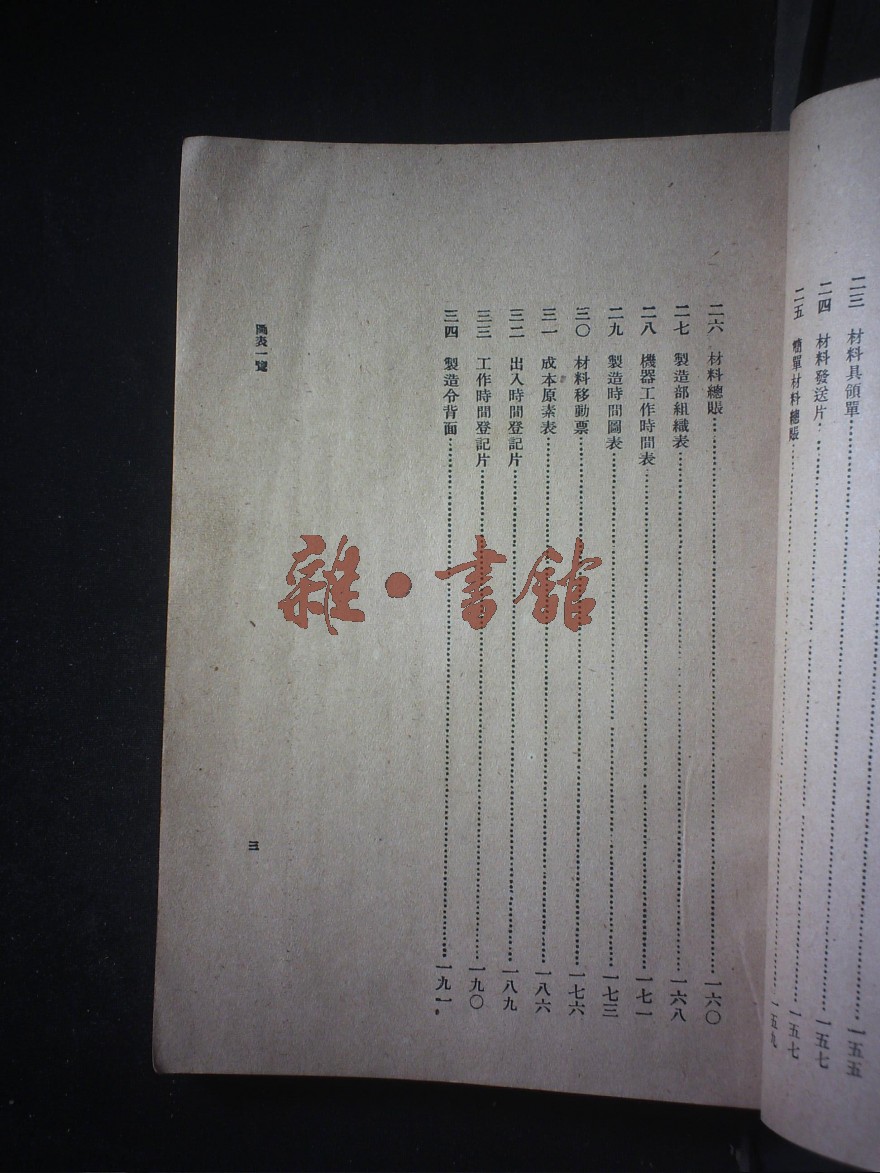 一五五
二三 材料具領單……一五七
二四 材料發送片……一五七
二五 簡單材料總賬……一五九
二六 材料總賬……一六〇
二七 製造部組織表……一六八
二八 機器工作時間表……一七一
二九 製造時間圖表……一七三
三〇 材料移動票……一七六
三一 成本原素表……一八六
三二 出入時間登記片……一八九
三三 工作時間登記片……一九〇
三四 製造令背面……一九一
圖表一覽
三
雜·書館